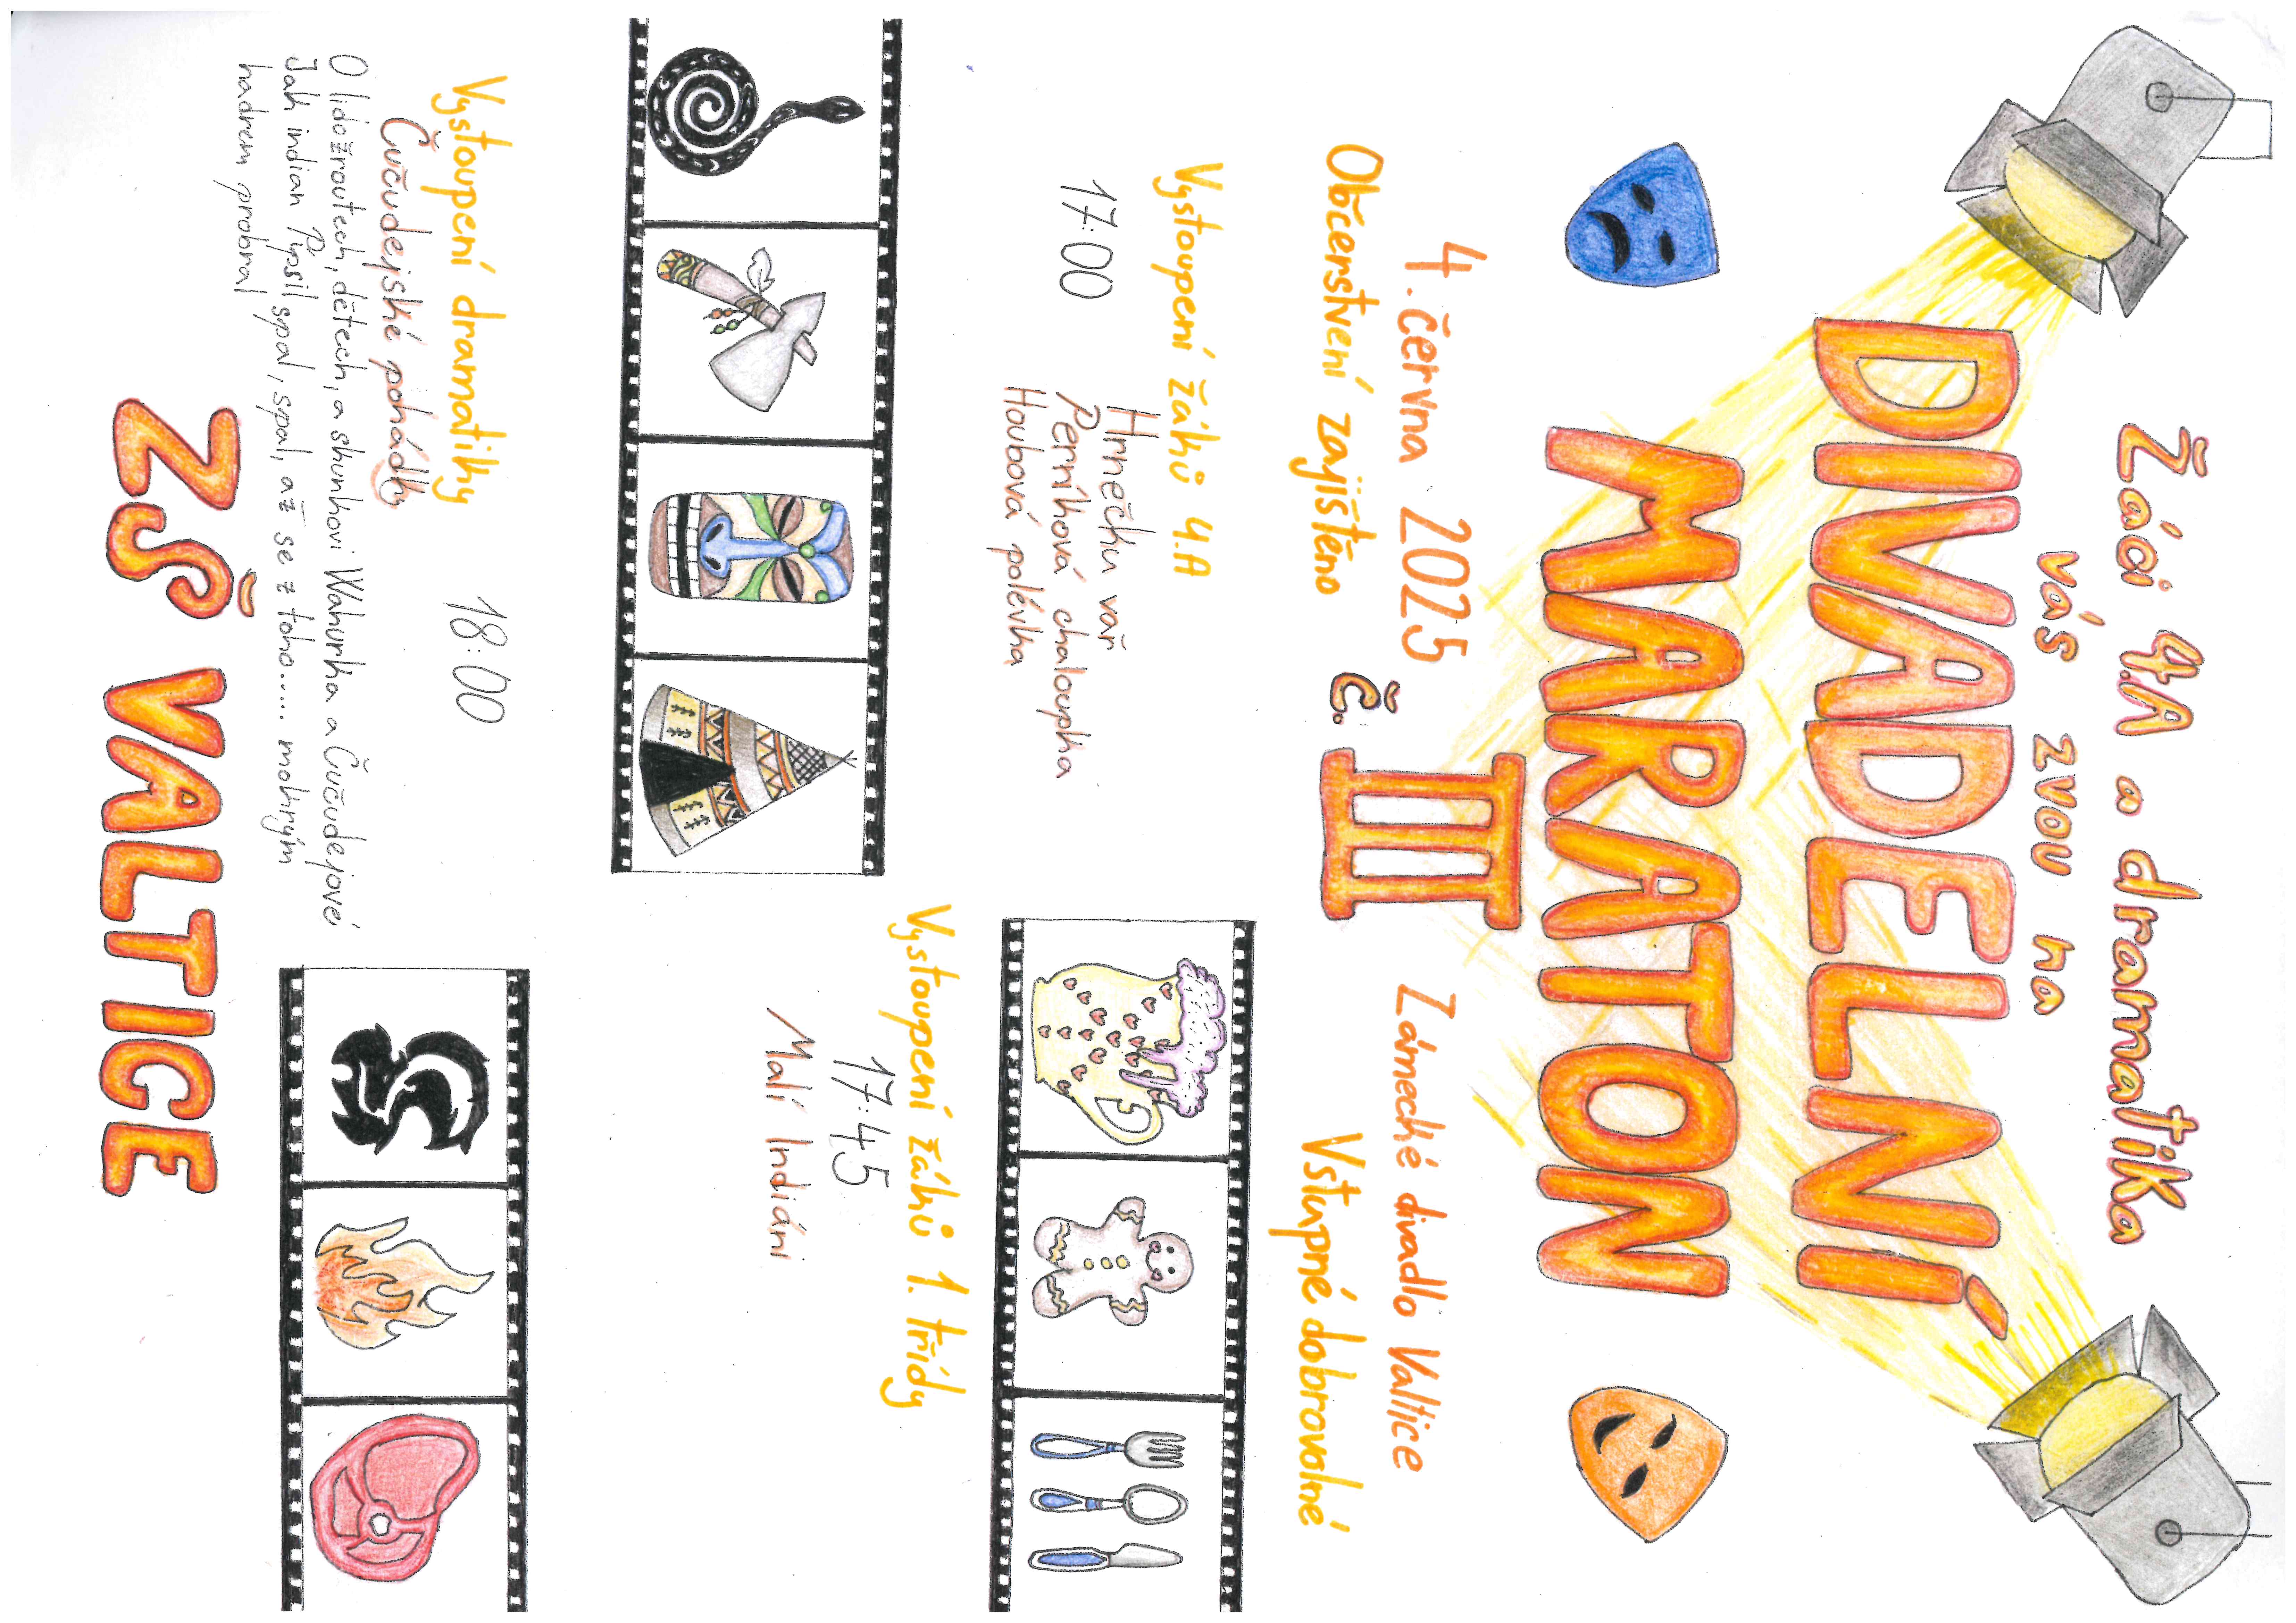 Žáci 4.A a dramatika
vás zvou na
DIVADELNÍ
MARATON
č. III
4. června 2025 Zámecké divadlo Valtice
Občerstvení zajištěno Vstupné dobrovolné
Vystoupení žáků 4.A
17:00
Hrnečku vař
Perníková chaloupka
Houbová polévka
Vystoupení žáků 1. třídy
17:45
Malí Indiáni
Vystoupení dramatiky 18:00
Čučudejské pohádky
O lidožroutech, dětech, a skunkovi Wahurka a Čučudejové
Jak indian Pypsil spal, spal, spal, až se z toho..... mokrým
hadrem probral
ZŠ VALTICE